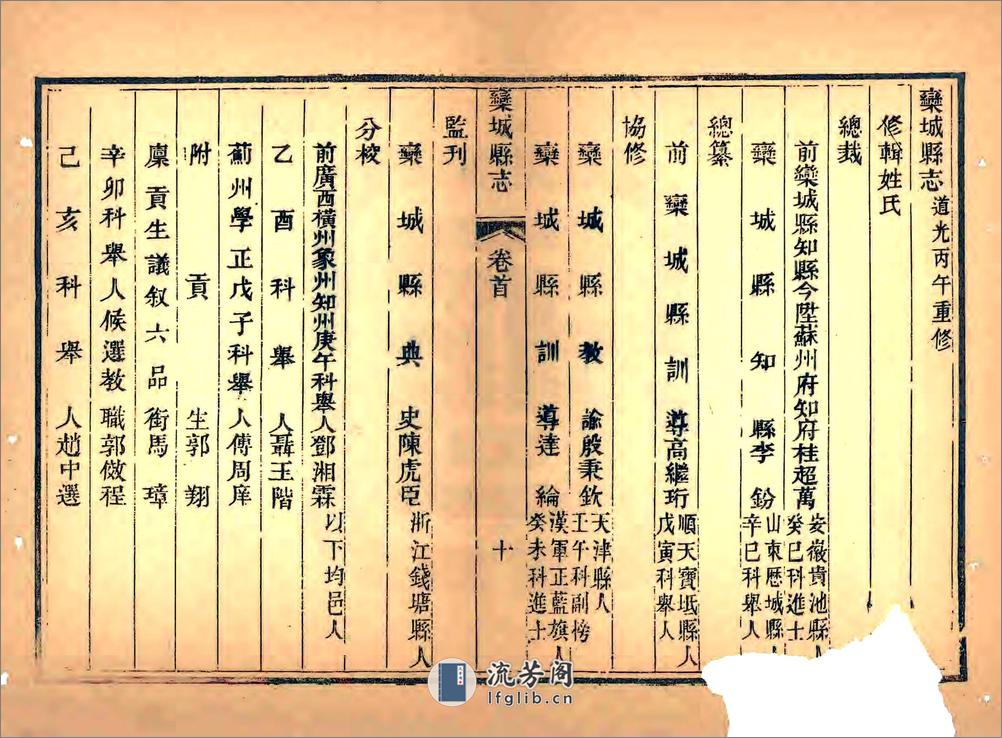 欒城縣志 道光丙午重修
修輯姓氏
總裁
前欒城縣知縣今陞蘇州府知府桂超萬 安徽貴池縣人 癸巳科進士
欒城縣知縣李鈖 山東歷城縣人 辛巳科舉人
總纂
前欒城縣訓導高繼珩 順天寶坻縣人 戊寅科舉人
協修
欒城縣教諭殷秉欽 天津縣人 壬午科副榜
欒城縣訓導達綸 漢軍正藍旗人 癸未科進士
欒城縣志 卷首 十
監刊
欒城縣典史陳虎臣 浙江錢塘縣人
分校
前廣西橫州象州知州庚午科舉人鄧湘霖 以下均邑人
乙酉科舉人聶王階
薊州學正戊子科舉人傅周庠
附貢生郭翔
廩貢生議叙六品銜馬璋
辛卯科舉人候選教職郭儆程
己亥科舉人趙中選
流芳阁
lfglib.cn